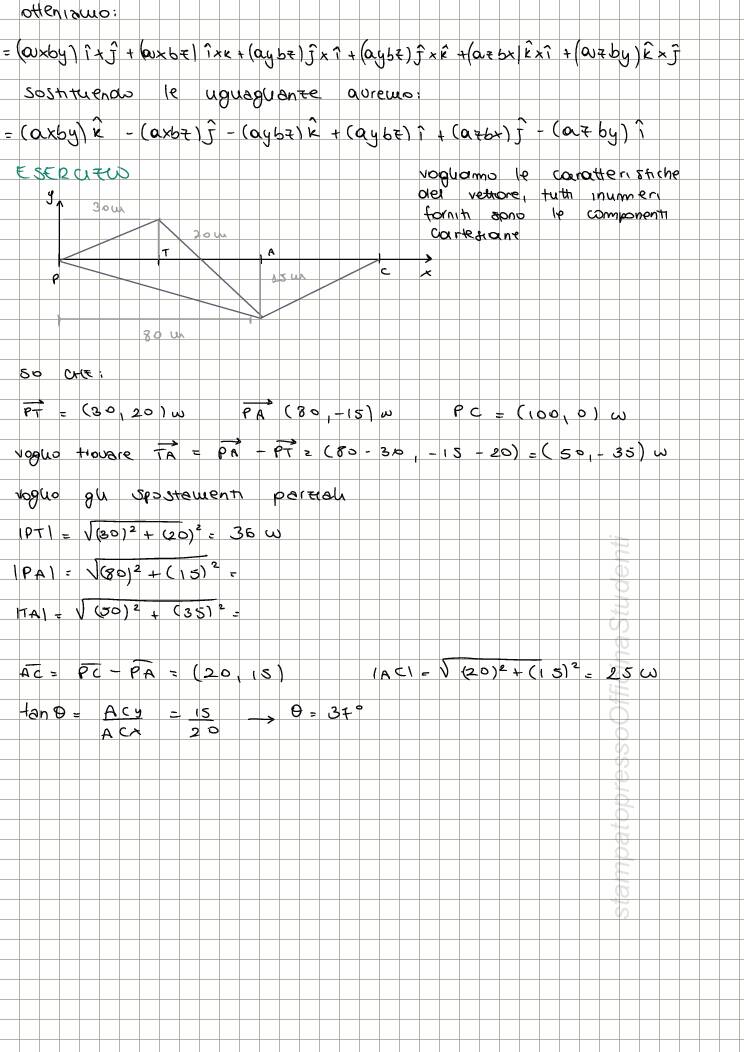 otteniamo:
= (axby) î×ĵ + (axbz) î×k + (aybz) ĵ×î + (aybz) ĵ×k̂ + (azbx) k̂×î + (azby) k̂×ĵ
sostituendo le uguaglianze avremo:
= (axby) k̂ - (axbz) ĵ - (aybz) k̂ + (aybz) î + (azbx) ĵ - (azby) î
ESERCIZIO
vogliamo le caratteristiche
del vettore, tutti i numeri
forniti sono le componenti
cartesiane
y
30 m
20 m
P
T
A
15 m
C
x
80 m
SO CHE:
PT = (30, 20) m PA (80, -15) m PC = (100, 0) m
voglio trovare TA = PA - PT = (80 - 30, -15 - 20) = (50, -35) m
voglio gli spostamenti parziali
|PT| = √(30)² + (20)² = 36 m
|PA| = √(80)² + (15)² =
|TA| = √(50)² + (35)² =
AC = PC - PA = (20, 15) |AC| = √(20)² + (15)² = 25 m
tan θ = ACy / ACx = 15 / 20 → θ = 37°
stampatopressoOfficinaStudenti